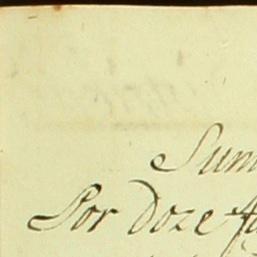 Sum
Por Doze